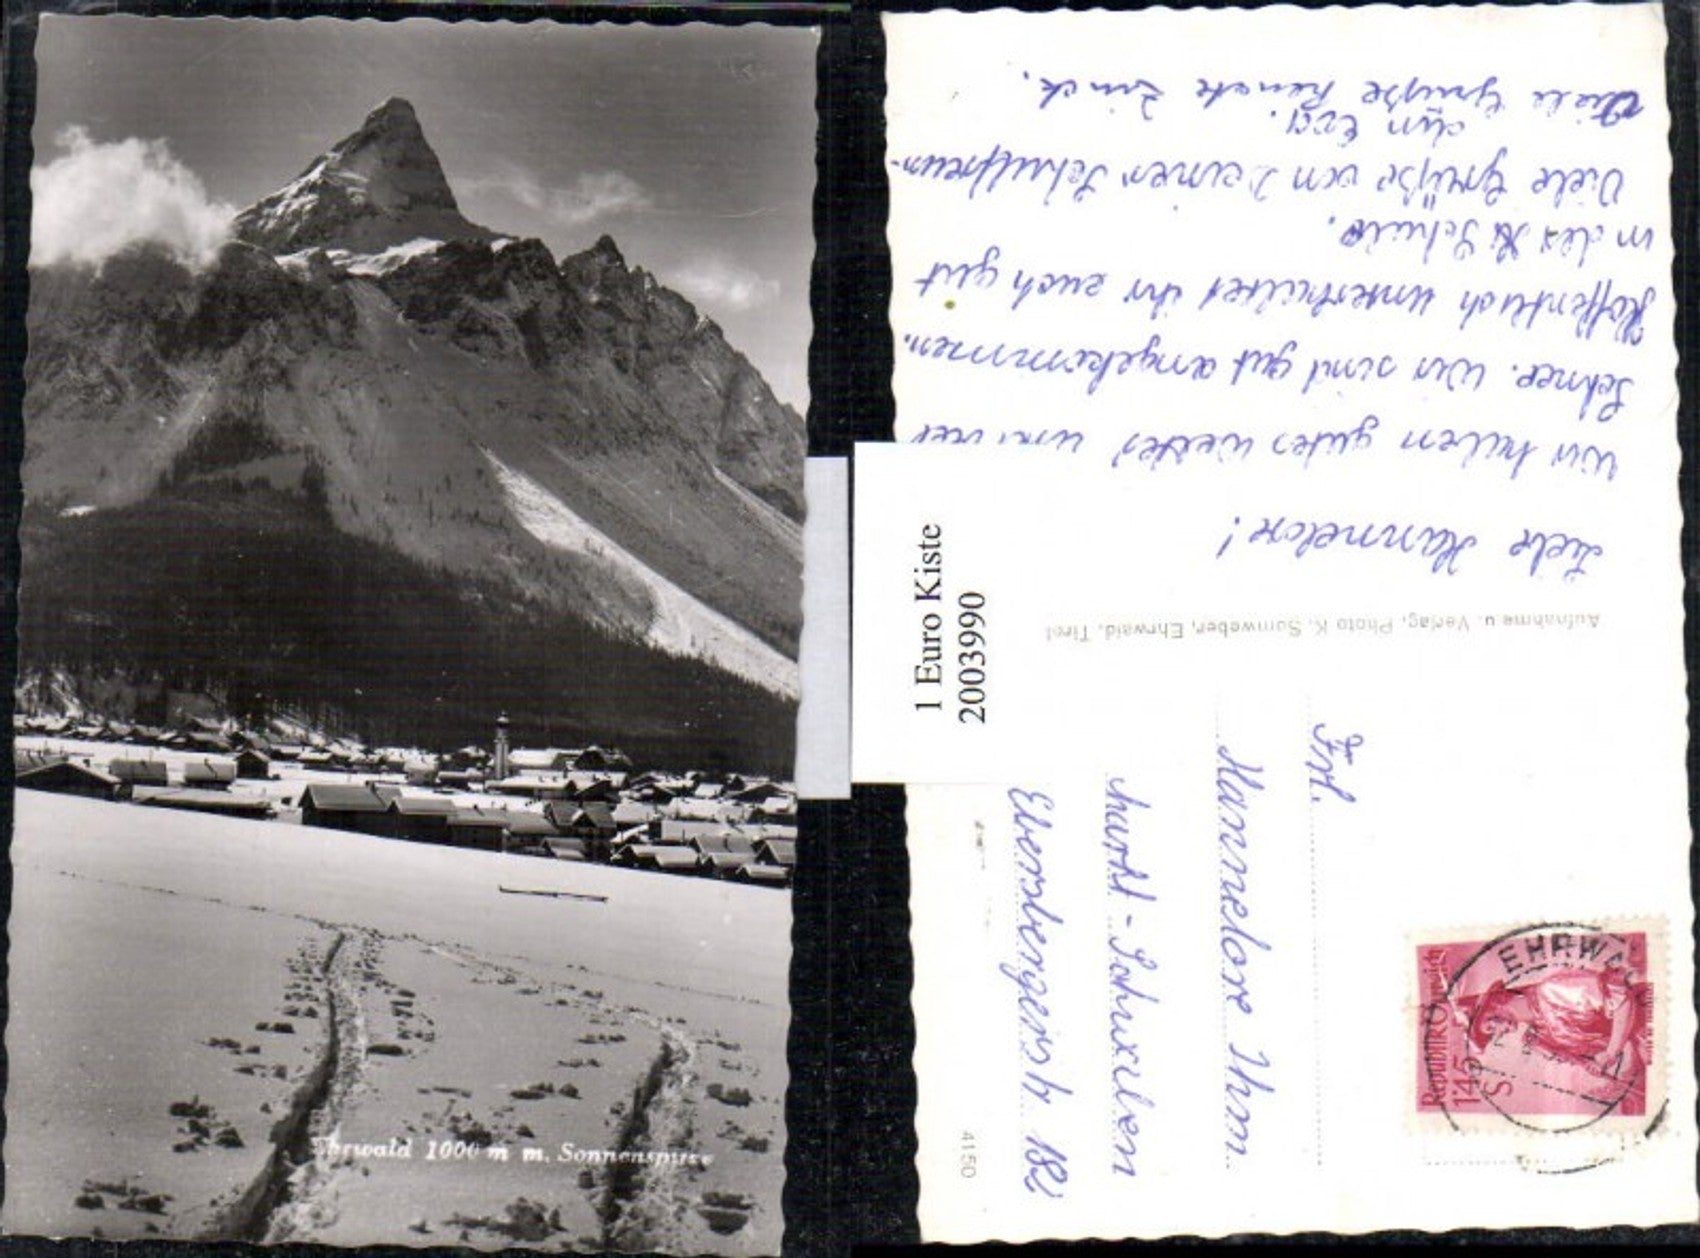 Ehrwald 1000 m m. Sonnenspitze
1 Euro Kiste
20039990
Liebe Hannelore!
Wir haben gutes Wetter und viel
Schnee. Wir sind gut angekommen.
Hoffentlich unterhaltet ihr euch gut
in der Schule.
Viele Grüße von Deiner Schulfreun-
din Eva.
Viele Grüße Renate Zinck.
Aufnahme u. Verlag, Photo K. Somweber, Ehrwald, Tirol
Frl.
Hannelore Thon
Ebersbergerstr 182
4150
EHRWALD
REPUBLIK ÖSTERREICH
1'45
S